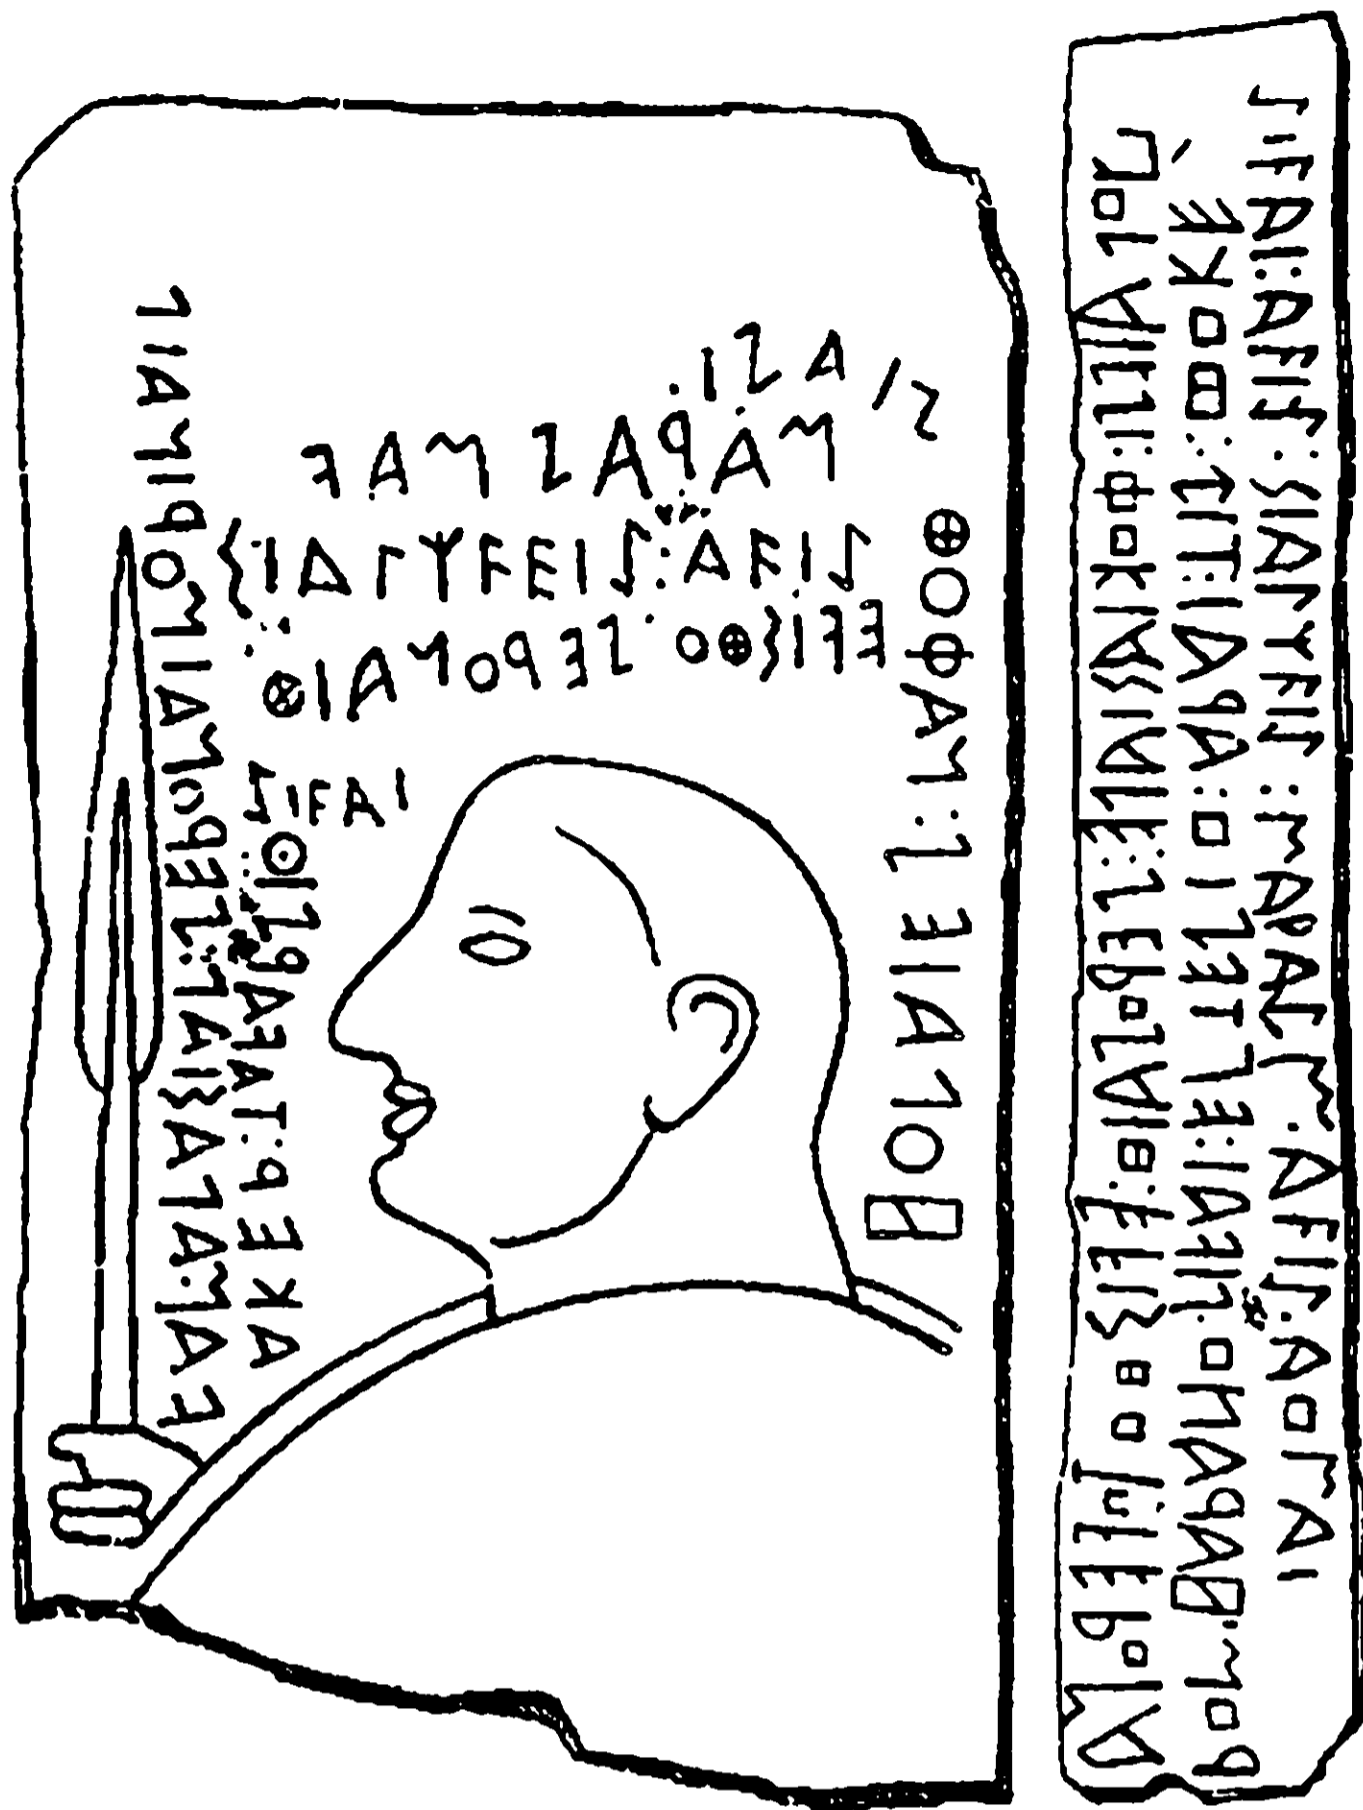 ΗΟΛΑΙΕΖ:ΝΑΦΟΘ:ΖΙΑΖΙ
ΜΑΡΑΖ:ΜΑϜ
ΣΙΑΛΧϜΕΙΖ:ΑϜΙΖ
ΕϜΙΣΘΟ:ΖΕΡΟΝΑΙΘ
ΖΙϜΑΙ
ΑΚΕΡ:ΤΑϜΑΡΖΙΟ
ϜΑΝΑΛΑΣΙΑΛ:ΖΕΡΟΝΑΙ:ΜΟΡΙΝΑΙΛ
ΗΟΛΑΙΕΖΙ:ΦΟΚΙΑΣΙΑΛΕ:ΖΕΡΟΖΑΙΘ:ΕϜΙΣΘΟ:ΤΟϜΕΡΟΝΑ
ΡΟΜ:ΗΑΡΑΛΙΟ:ΖΙϜΑΙ:ΕΠΤΕΖΙΟ:ΑΡΑΙ:ΤΙΖ:ΦΟΚΕ
ΖΙϜΑΙ:ΑϜΙΖ:ΣΙΑΛΧϜΙΖ:ΜΑΡΑΖΜ:ΑϜΙΖ:ΑΟΜΑΙ